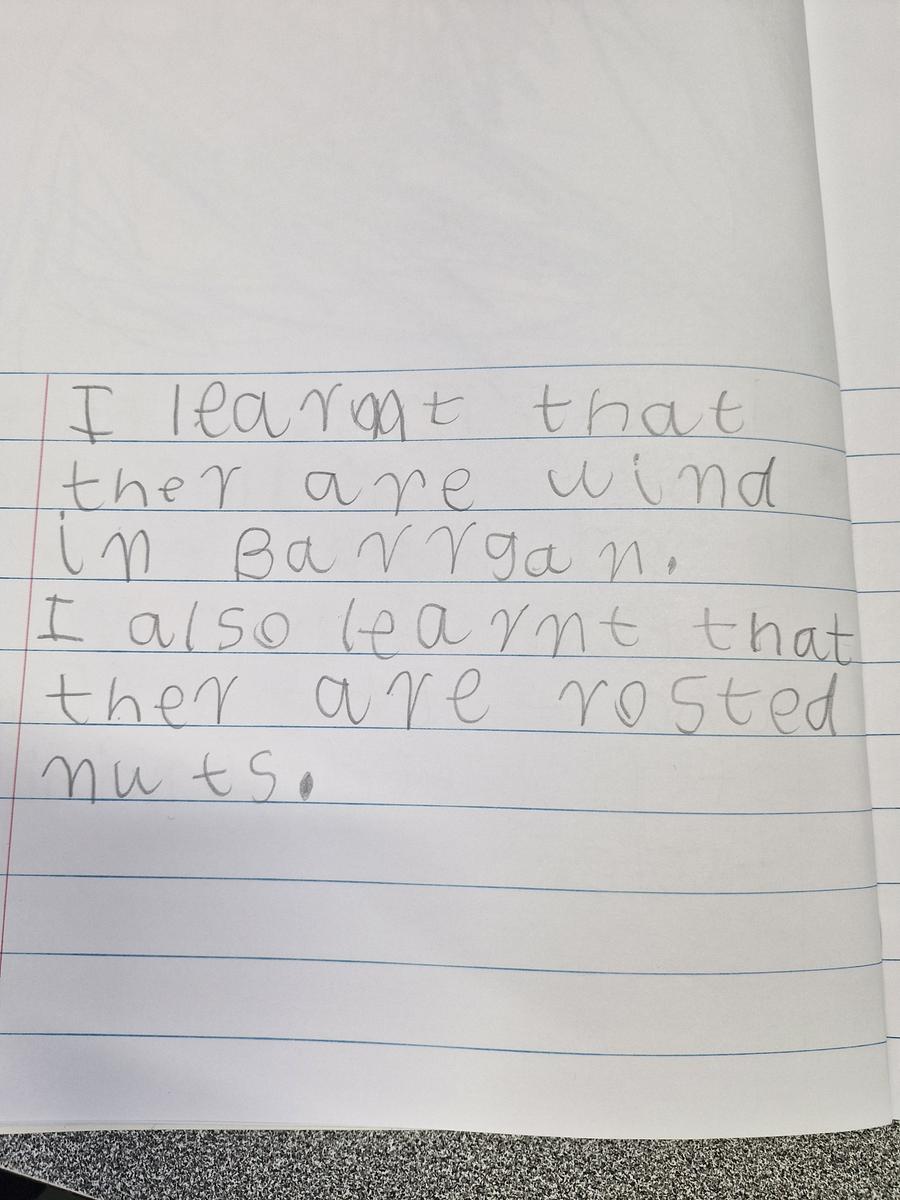 I learnt that
ther are wind
in Barrgan.
I also learnt that
ther are rosted
nuts.